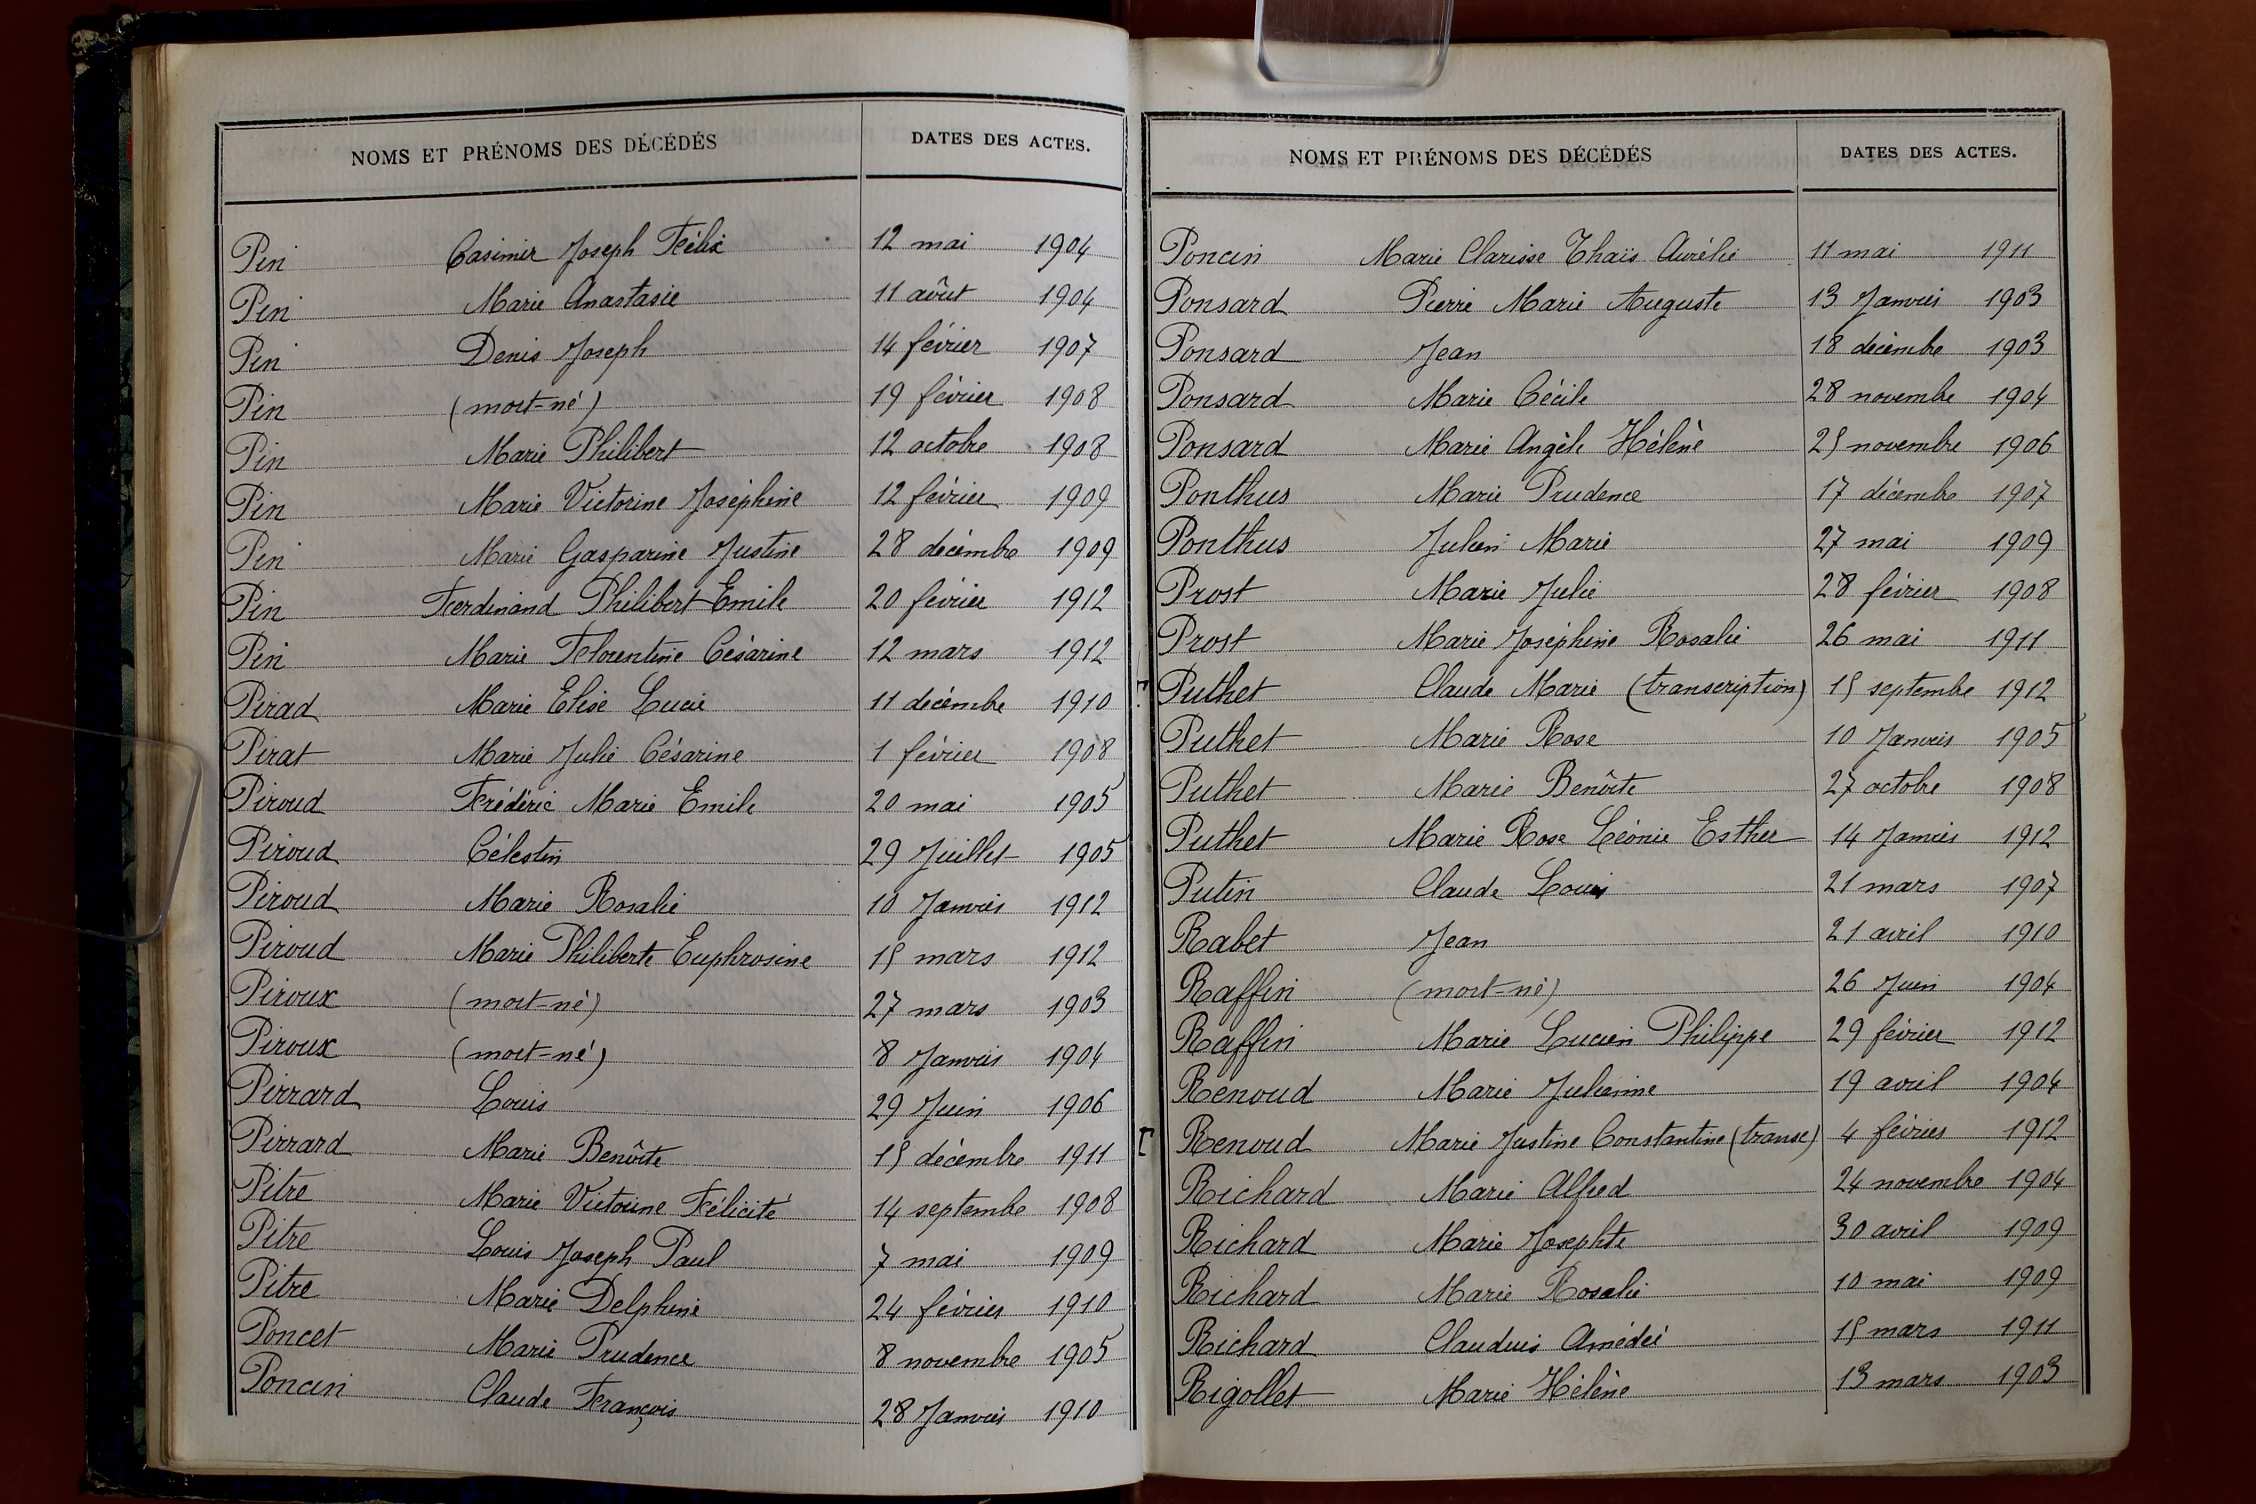 NOMS ET PRÉNOMS DES DÉCÉDÉS DATES DES ACTES.
Pin Casimir Joseph Félix 12 mai 1904
Pin Marie Anastasie 11 aôut 1904
Pin Denis Joseph 14 février 1907
Pin (mort-né) 19 février 1908
Pin Marie Philibert 12 octobre 1908
Pin Marie Victorine Joséphine 12 février 1909
Pin Marie Gasparine Justine 28 décembre 1909
Pin Ferdinand Philibert Emile 20 février 1912
Pin Marie Florentine Césarine 12 mars 1912
Pirad Marie Elise Lucie 11 décembre 1910
Pirat Marie Julie Césarine 1 février 1908
Piroud Frédéric Marie Emile 20 mai 1905
Piroud Célestin 29 Juillet 1905
Piroud Marie Rosalie 10 Janvier 1912
Piroud Marie Philiberte Euphrosine 15 mars 1912
Piroux (mort-né) 27 mars 1903
Piroux (mort-né) 8 Janvier 1904
Pirrard Louis 29 Juin 1906
Pirrard Marie Benôite 15 décembre 1911
Pitre Marie Victorine Félicité 14 septembre 1908
Pitre Louis Joseph Paul 7 mai 1909
Pitre Marie Delphine 24 février 1910
Poncet Marie Prudence 8 novembre 1905
Poncin Claude François 28 Janvier 1910
NOMS ET PRÉNOMS DES DÉCÉDÉS DATES DES ACTES.
Poncin Marie Clarisse Thaïs Aurélie 11 mai 1911
Ponsard Pierre Marie Auguste 13 Janvier 1903
Ponsard Jean 18 décembre 1903
Ponsard Marie Cécile 28 novembre 1904
Ponsard Marie Angèle Hélène 25 novembre 1906
Ponthus Marie Prudence 17 décembre 1907
Ponthus Julien Marie 27 mai 1909
Prost Marie Julie 28 février 1908
Prost Marie Joséphine Rosalie 26 mai 1911
Puthet Claude Marie (transcription) 15 septembre 1912
Puthet Marie Rose 10 Janvier 1905
Puthet Marie Benôite 27 octobre 1908
Puthet Marie Rose Léonie Esther 14 Janvier 1912
Putin Claude Louis 21 mars 1907
Rabet Jean 21 avril 1910
Raffin (mort-né) 26 Juin 1904
Raffin Marie Lucien Philippe 29 février 1912
Renoud Marie Julienne 19 avril 1904
Renoud Marie Justine Constantine (transc) 4 février 1912
Richard Marie Alfred 24 novembre 1904
Richard Marie Josephte 30 avril 1909
Richard Marie Rosalie 10 mai 1909
Richard Claudius Amédée 15 mars 1911
Rigollet Marie Hélène 13 mars 1903